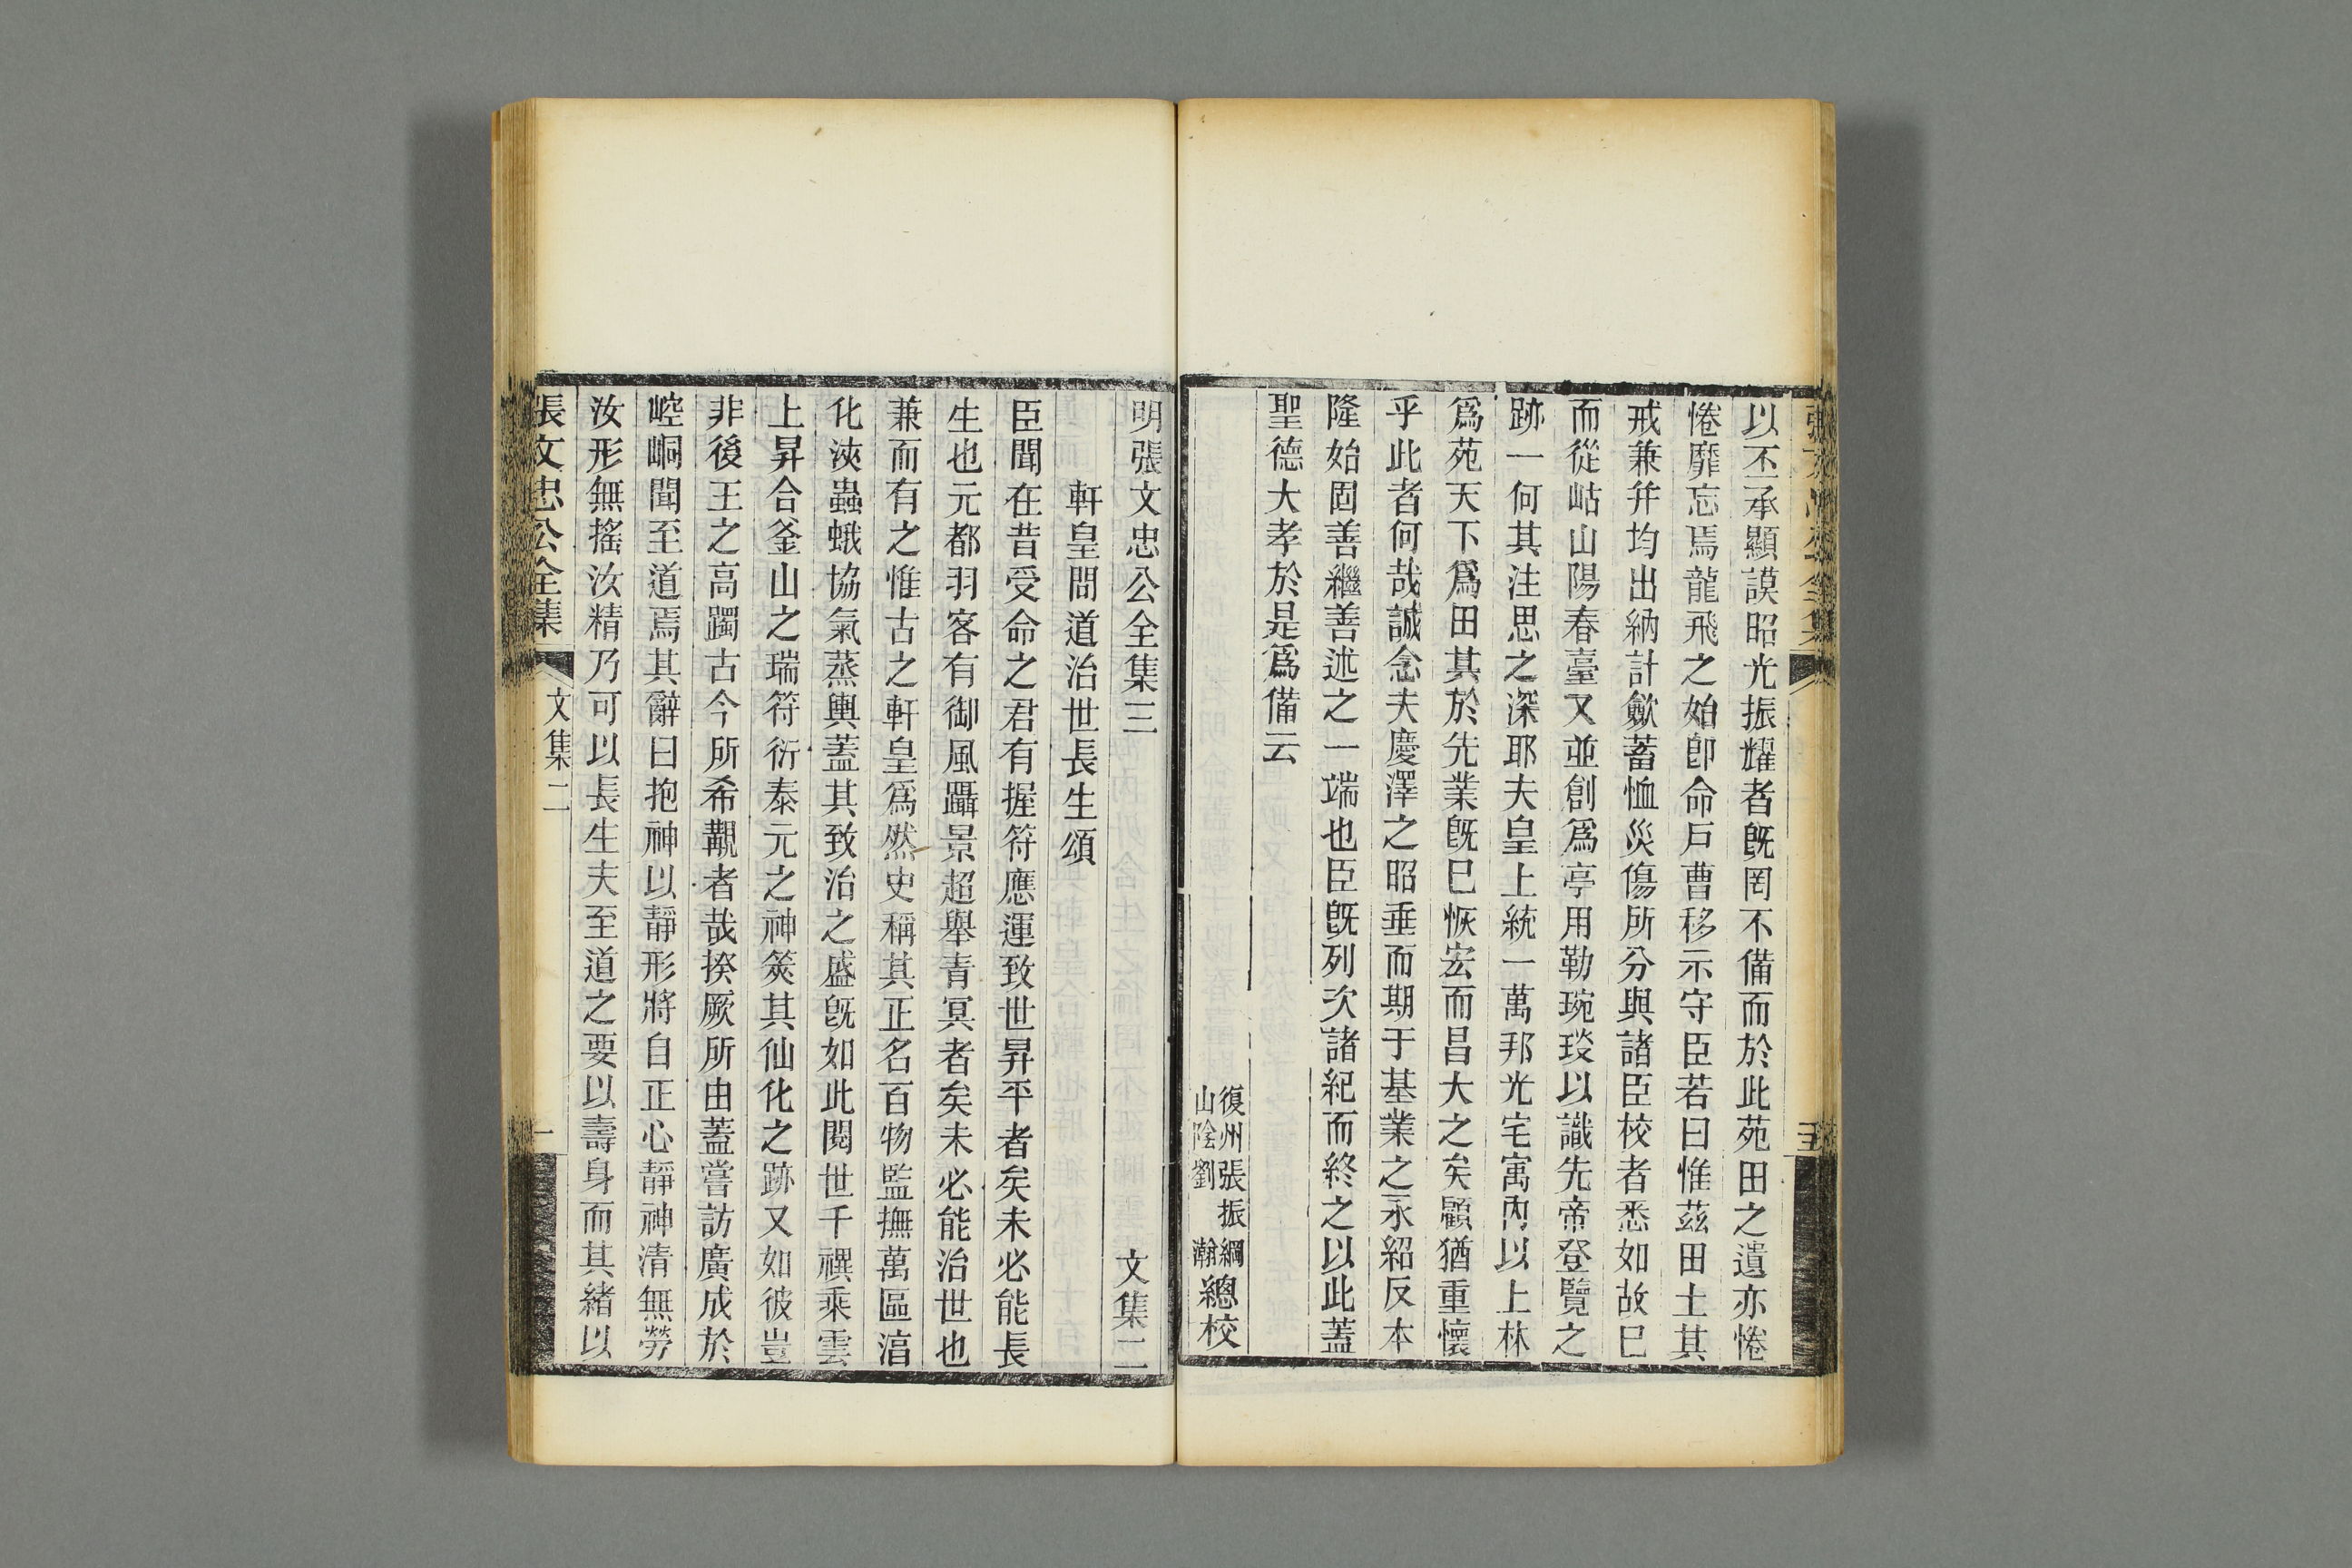 以丕承顯謨昭光振耀者旣罔不備而於此苑田之遺亦惓
惓靡忘焉龍飛之始卽命戶曹移示守臣若曰惟茲田土其
戒兼幷均出納計歛蓄恤災傷所分與諸臣校者悉如故已
而從岵山陽春臺又並創爲亭用勒琬琰以識先帝登覽之
跡一何其注思之深耶夫皇上統一萬邦光宅寓內以上林
爲苑天下爲田其於先業旣已恢宏而昌大之矣顧猶重懷
乎此者何哉誠念夫慶澤之昭垂而期于基業之永紹反本
隆始固善繼善述之一端也臣旣列次諸紀而終之以此蓋
聖德大孝於是爲備云
復州張振綱
山陰劉瀚
總校
明張文忠公全集三
文集二
軒皇問道治世長生頌
臣聞在昔受命之君有握符應運致世昇平者矣未必能長
生也元都羽客有御風躡景超舉青冥者矣未必能治世也
兼而有之惟古之軒皇爲然史稱其正名百物監撫萬區滀
化浹蟲蛾協氣蒸輿蓋其致治之盛旣如此閱世千禩乘雲
上昇合釜山之瑞符衍泰元之神筴其仙化之跡又如彼豈
非後王之高躅古今所希覯者哉揆厥所由蓋嘗訪廣成於
崆峒聞至道焉其辭曰抱神以靜形將自正心靜神清無勞
汝形無搖汝精乃可以長生夫至道之要以壽身而其緒以
張文忠公全集
文集二
一